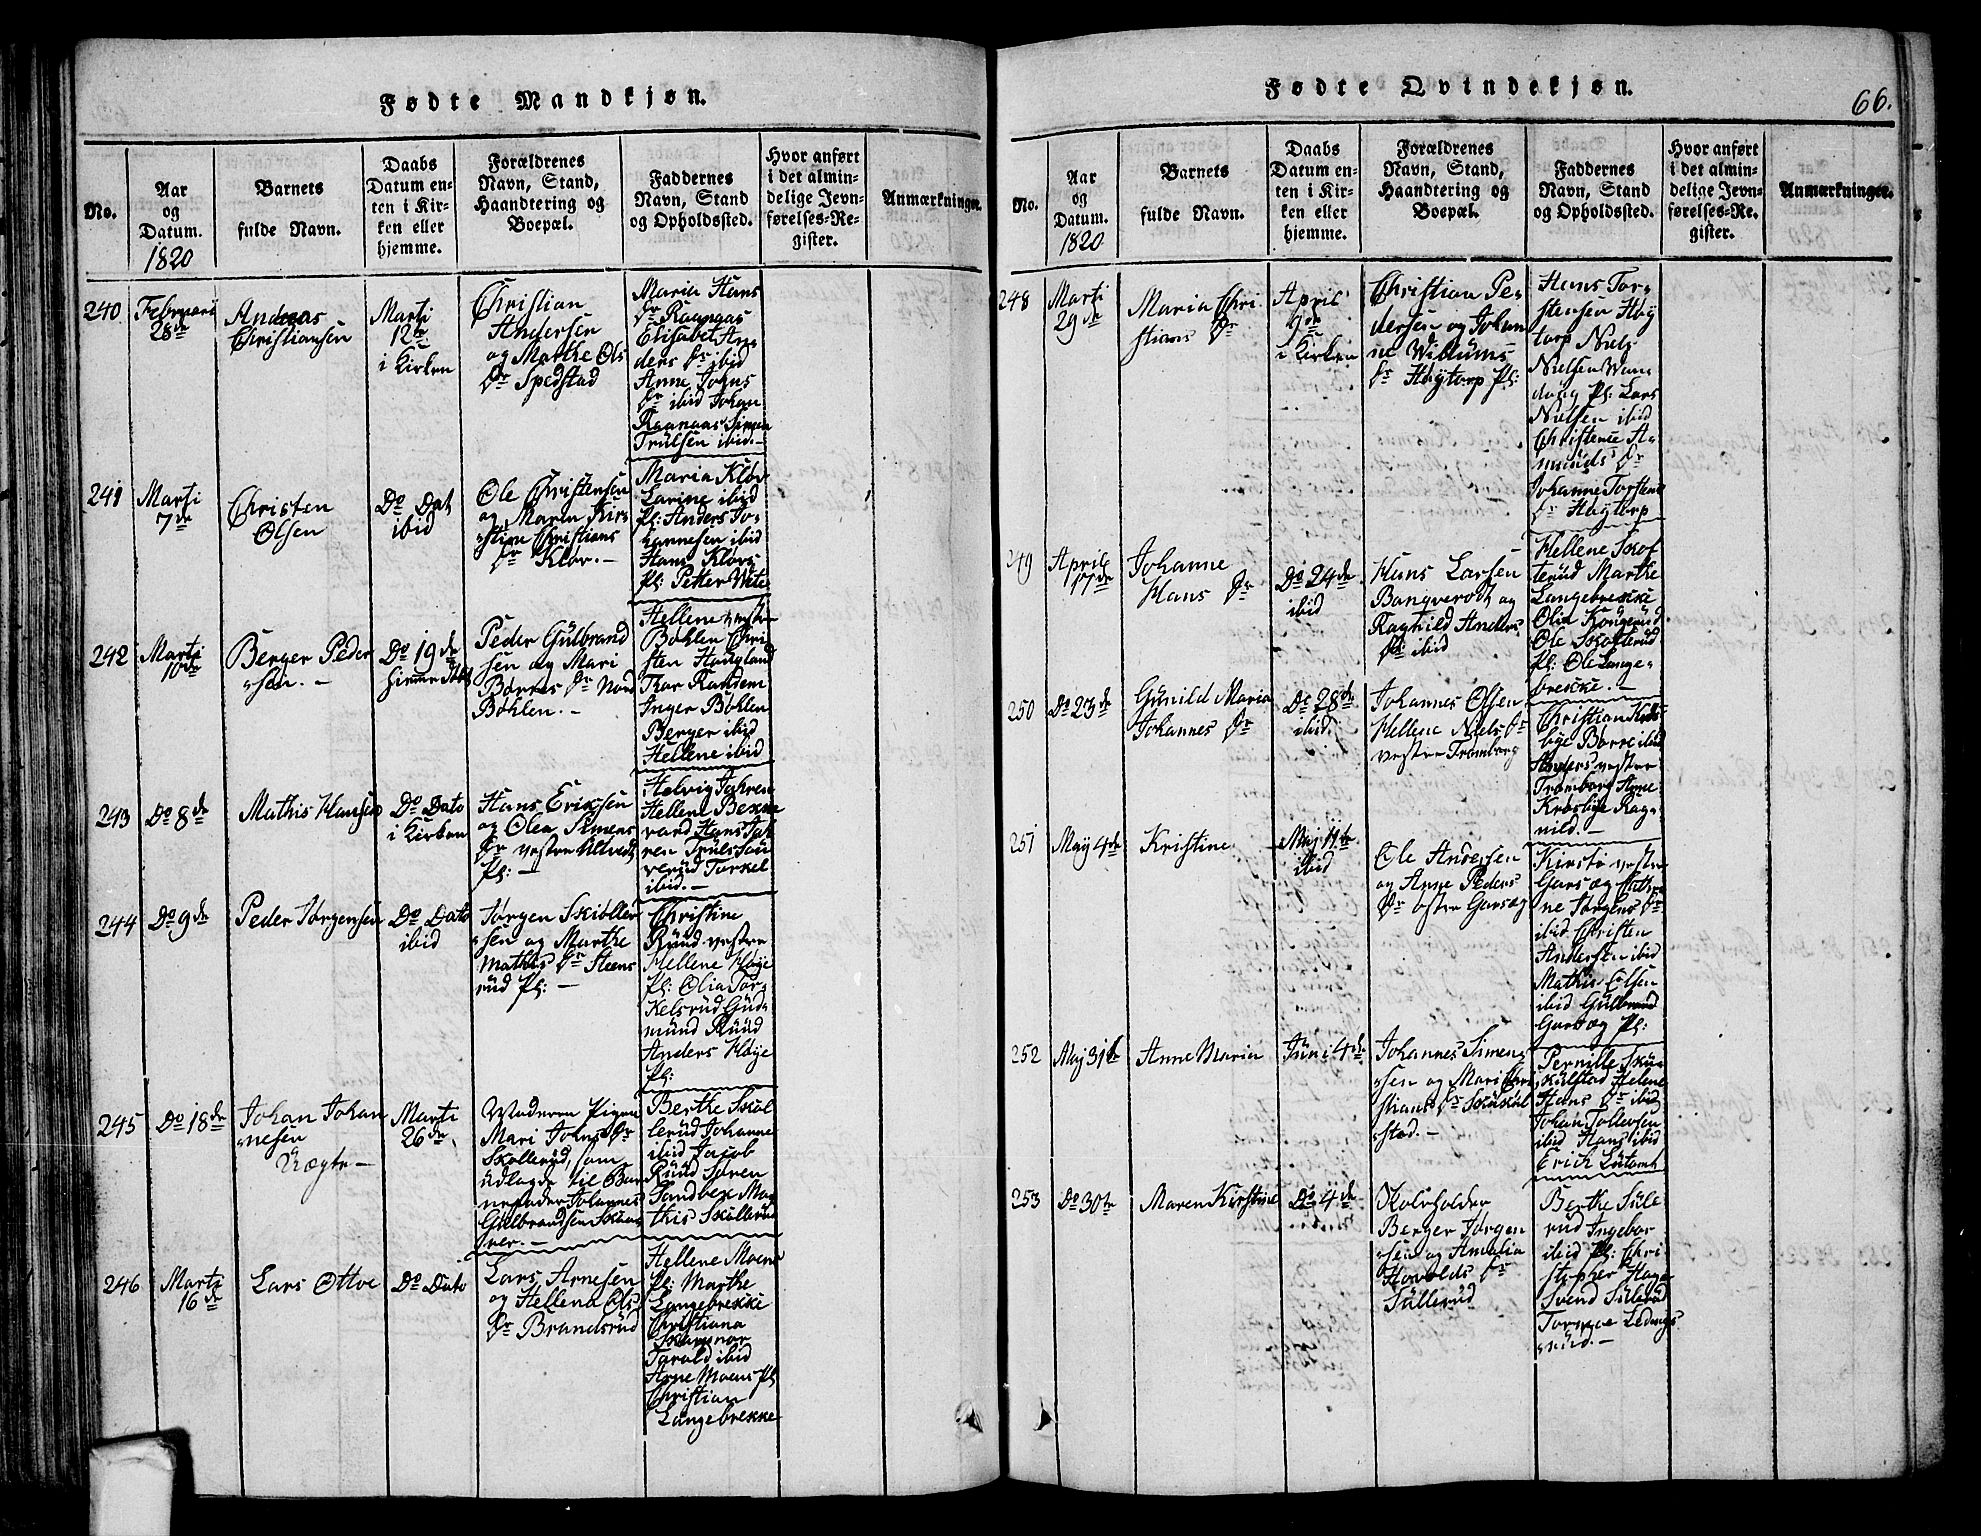 Fødte Mandkjøn.
No.
Aar
og
Datum.
1820
Barnets
fulde Navn.
Daabs
Datum en-
ten i Kir-
ken eller
hjemme.
Forældrenes
Navn, Stand,
Haandtering og
Boepæl.
Faddernes
Navn, Stand
og Opholdssted.
Hvor anført
i det almin-
delige Jevn-
førelses-Re-
gister.
Anmærkninger.
240
Februari
28de
Andreas
Christiansen
Marti
12te
i Kirken
Christian
Andersen
og Marthe Ols
Dr Spedstad
Maria Hans
Dr Raanaas
Elisabet An-
ders Dr ibid
Anne Johns
Dr ibid Johan
Raanaas Simen
Trulsen ibid.-
241
Marti
7de
Christen
Olsen
Do Dat
ibid
Ole Christensen
og Maren Kir-
stine Christians
Dr Klov.-
Maria Klov
Larine ibid
Pl: Anders Jo-
hannesen ibid
Hans Klov
Pl: Petter
242
Marti
10de
Berger Peder
-sen.-
Do 19de
Peder Gulbrand
sen og Mari
Børres Dr Nord
Bøhlen.-
Hellene vestre
Bøhlen Chri
sten Haugland
Thor Randem
Inger Bøhlen
Berger ibid
Hellene ibid
243
Do 8de
Mathis Hansen
Do Dato
i Kirken
Hans Eriksen
og Olea Simens
Dr vestre
Pl:-
Helvig Jahren
Hellene
vard Hans Jah
ren Truls Sou
verud Torkel
ibid.-
244
Do 9de
Peder Jørgensen
Do Dato
ibid
Jørgen Skiøller
-sen og Marthe
Mathis Dr Steens
rud Pl:-
Christine
Ruud vestre
Hellene Høye
Pl: Olia Tor-
kelsrud Gud-
mund Ruud
Anders Høye
Pl:
245
Do 18de
Johan Johan
-nesen
Uægte-
Marti
26de
Pigen
Mari Johns Dr
Skollerud, som
udlagde til Bar
nefader Johannes
Gulbrandsen
Berthe Skul
lerud Johanne
ibid Jacob
Ruud Søren
Sandbek Ma
this Skullerud
246
Marti
16de
Lars Ottve
Do Dato
Lars Arnesen
og Hellena Ols
Dr Brandsrud
Hellene Moene
Pl: Marthe
Langebrekke
Christiana
Tarald ibid
Arne Moens Pl
Christian
Langebrekke
Fødte Qvindekjøn.
66.
No.
Aar
og
Datum.
1820
Barnets
fulde Navn.
Daabs
Datum en-
ten i Kir-
ken eller
hjemme.
Forældrenes
Navn, Stand,
Haandtering og
Boepæl.
Faddernes
Navn, Stand
og Opholdssted.
Hvor anført
i det almin-
delige Jevn-
førelses-Re-
gister.
Anmærkninger.
248
Marti
29de
Maria Chri
stians Dr
April
i Kirken
Christian Pe-
dersen og Johan
ne Willums
Dr Høytorp Pl:
Hans Tor-
stensen Høy
torp Niels
Nielsen
Pl: Lars
Nielsen ibid
Christense A-
munds Dr
Johanne Torstens
Dr Høytorp
249
April
17de
Johanne
Hans Dr
Do 24de
ibid
Hans Larsen
og
Ragnild Anders
Dr ibid
Hellene Skof
terud Marthe
Langebrekke
Olia Kongerud
Ole Skofterud
Pl: Ole Lange-
brekke.-
250
Do 23de
Gunild Maria
Johannes Dr
Do 28de
ibid.
Johannes Olsen
Hellene Niels Dr
vestre Tromborg
Christian Kros-
bye Børre ibid
Anders vestre
Tromborg Arne
Krosbye Rag-
nild.-
251
May 4de
Kristine
Maj 11te
ibid
Ole Andersen
og Anne Peders
Dr østre Garseg
Kirsti vestre
Garseg Cathri
ne Jørgens Dr
ibid Christen
Andersen ibid
Mathis Olsen
ibid Gulbrand
Garseg Pl:
252
Maj 31te
Anne Maria
Juni 4de
Johannes Simen-
-sen og Mari Chri
stians Dr Skukul
-stad.-
Pernille Sku
-kulstad Helene
Hans Dr ibid
Johan Tollevsen
ibid Hans ibid
Erich
253
Do 30te
Maren Kirstine
Do 4de
Berger Jørgen
-sen og Amalia
Hovolds Dr
Sullerud
Berthe Sille
rud Ingebor
ibid Pl: Chri
stopher Hage
Svend Sillerud